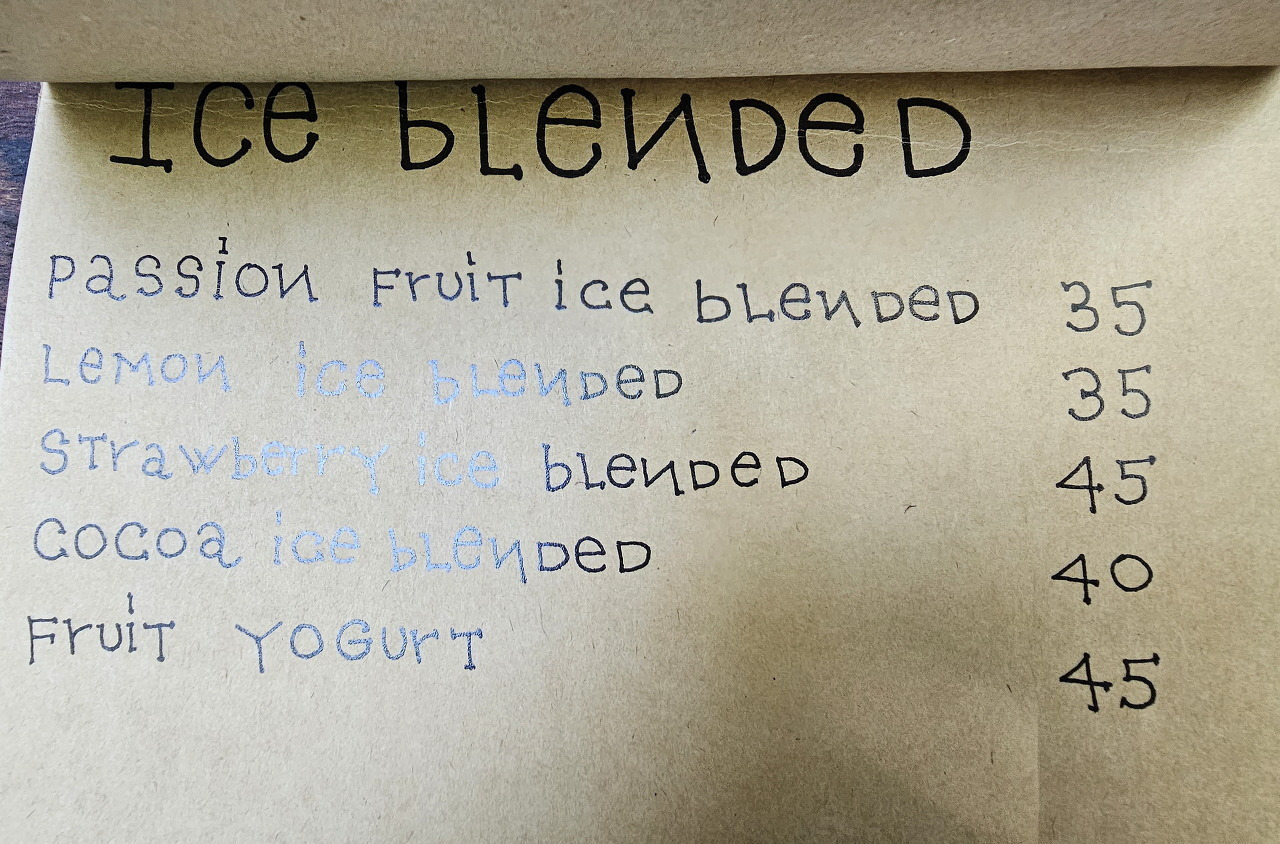 Ice blended
Passion Fruit ice blended 35
Lemon ice blended 35
Strawberry ice blended 45
Cocoa ice blended 40
Fruit Yogurt 45